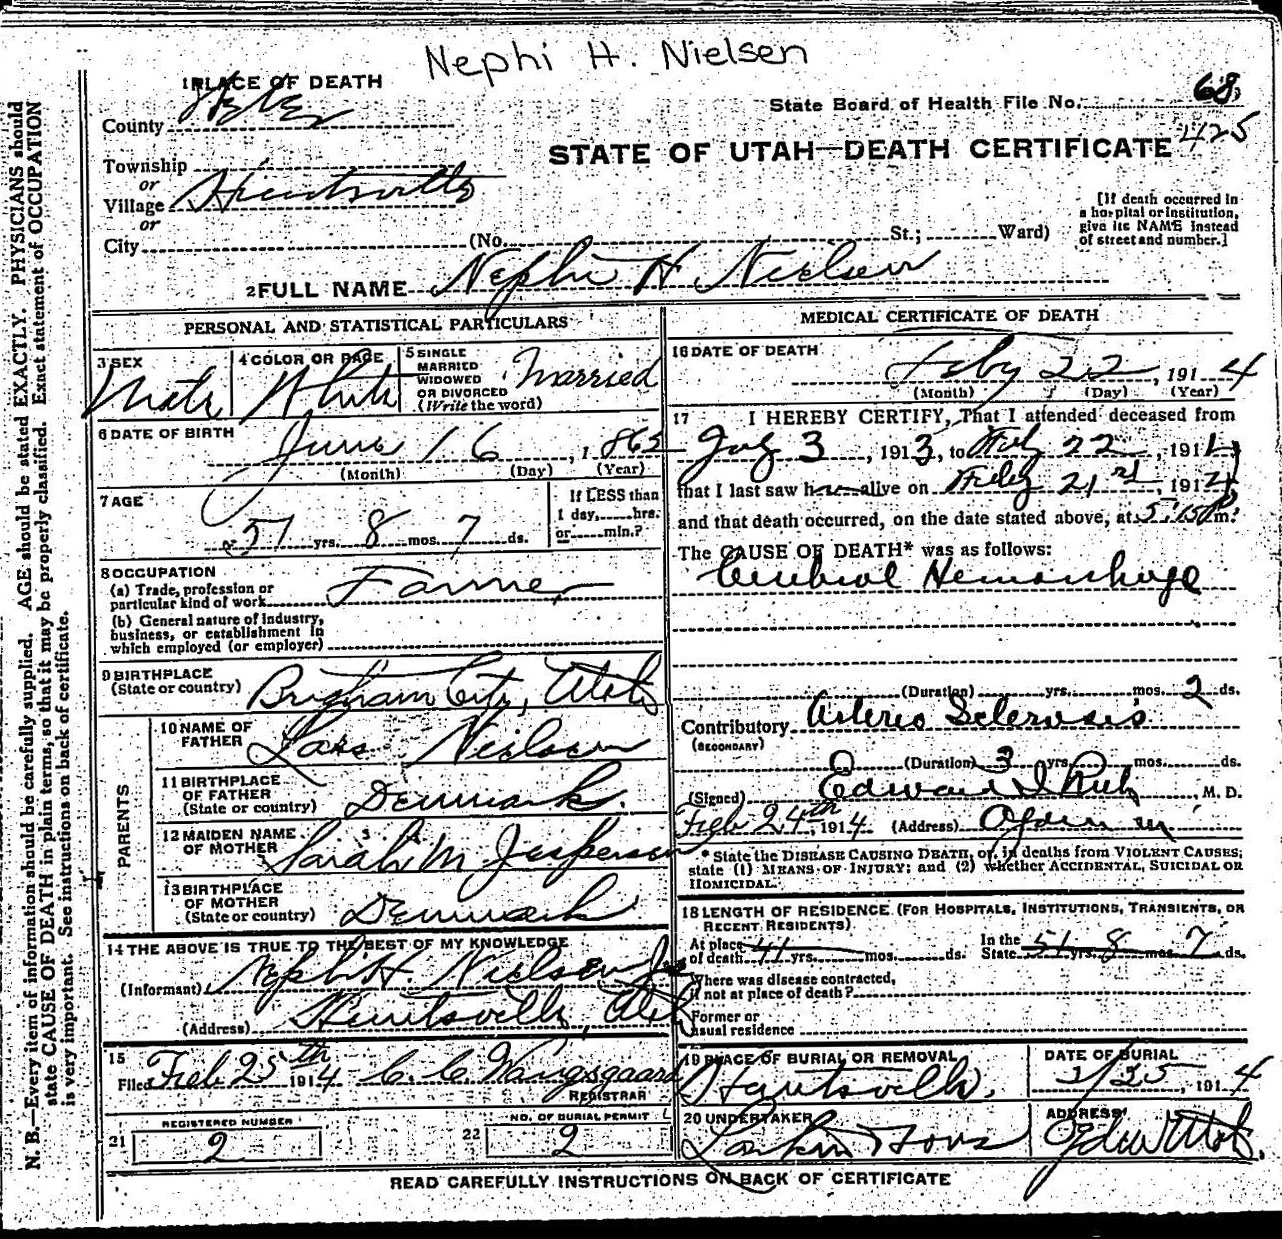 Nephi H. Nielsen
1 PLACE OF DEATH
County Weber
State Board of Health File No. 68
425
STATE OF UTAH—DEATH CERTIFICATE
Township
or
Village Huntsville
or
City (No. St.; Ward)
[If death occurred in
a hospital or institution,
give its NAME instead
of street and number.]
2 FULL NAME Nephi H Nielsen
PERSONAL AND STATISTICAL PARTICULARS
3 SEX Male
4 COLOR OR RACE White
5 SINGLE
MARRIED
WIDOWED
OR DIVORCED
(Write the word) Married
6 DATE OF BIRTH June 16, 1862
(Month) (Day) (Year)
7 AGE
51 yrs. 8 mos. 7 ds.
If LESS than
1 day, hrs.
or min.?
8 OCCUPATION
(a) Trade, profession or
particular kind of work Farmer
(b) General nature of industry,
business, or establishment in
which employed (or employer)
9 BIRTHPLACE
(State or country) Brigham City, Utah
PARENTS
10 NAME OF
FATHER Lars Nielsen
11 BIRTHPLACE
OF FATHER
(State or country) Denmark.
12 MAIDEN NAME
OF MOTHER Sarah M Jespersen
13 BIRTHPLACE
OF MOTHER
(State or country) Denmark
14 THE ABOVE IS TRUE TO THE BEST OF MY KNOWLEDGE
(Informant) Nephi H Nielsen Jr
(Address) Huntsville, Utah
15
Filed Feb 25th 1914 C. C. Wangsgaard
REGISTRAR
21 REGISTERED NUMBER
2
22 NO. OF BURIAL PERMIT
2
MEDICAL CERTIFICATE OF DEATH
16 DATE OF DEATH
Feby 22, 1914
(Month) (Day) (Year)
17 I HEREBY CERTIFY, That I attended deceased from
3, 1913, to Feb 22, 1914
that I last saw h alive on Feby 21, 1914
and that death occurred, on the date stated above, at 5:15 P m.
The CAUSE OF DEATH* was as follows:
Cerebral Hemorrhage
(Duration) yrs. mos. 2 ds.
Contributory Arterio Sclerosis
(SECONDARY)
(Duration) 3 yrs. mos. ds.
(Signed) Edward I Rich, M. D.
Feb 24th, 1914 (Address) Ogden
* State the DISEASE CAUSING DEATH, or, in deaths from VIOLENT CAUSES,
state (1) MEANS OF INJURY; and (2) whether ACCIDENTAL, SUICIDAL OR
HOMICIDAL.
18 LENGTH OF RESIDENCE (FOR HOSPITALS, INSTITUTIONS, TRANSIENTS, OR
RECENT RESIDENTS)
At place
of death 41 yrs. mos. ds. In the
State 51 yrs. 8 mos. 7 ds.
Where was disease contracted,
if not at place of death?
Former or
usual residence
19 PLACE OF BURIAL OR REMOVAL
Huntsville,
DATE OF BURIAL
2/25, 1914
20 UNDERTAKER
Larkin & Sons
ADDRESS
Ogden Utah.
READ CAREFULLY INSTRUCTIONS ON BACK OF CERTIFICATE
N. B.—Every item of information should be carefully supplied. AGE should be stated EXACTLY. PHYSICIANS should
state CAUSE OF DEATH in plain terms, so that it may be properly classified. Exact statement of OCCUPATION
is very important. See instructions on back of certificate.